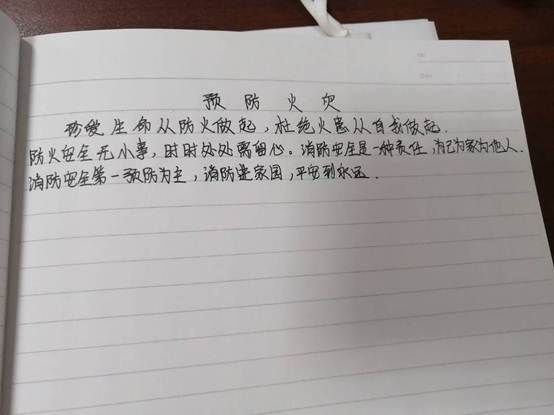 预防火灾
珍爱生命从防火做起,杜绝火患从自我做起.
防火安全无小事,时时处处需留心。消防安全是一种责任,为己为家为他人.
消防安全第一预防为主,消防进家园,平安到永远.